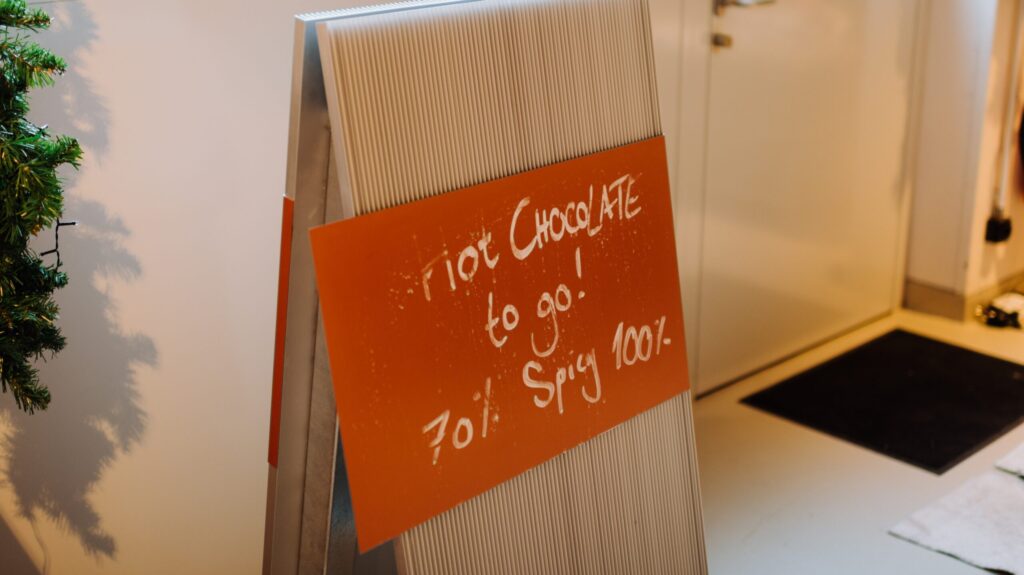 Hot CHOCOLATE
to go!
70% Spicy 100%